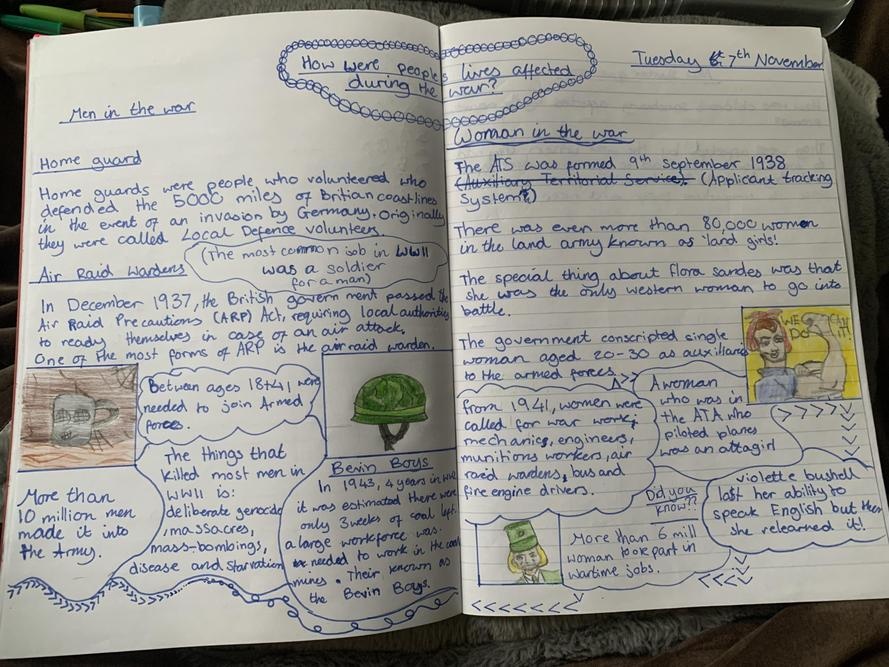 How were people's lives affected
during the war?
Tuesday 7th November
Men in the war
Home guard
Home guards were people who volunteered who
defended the 5000 miles of Britian coastlines
in the event of an invasion by Germany. Originally
they were called Local Defence volunteer.
(The most common job in WWII
was a soldier
for a man)
Air Raid Wardens
In December 1937, the British government passed the
Air Raid Precautions (ARP) Act, requiring local authorities
to ready themselves in case of an air attack,
One of the most forms of ARP is the air raid warden.
Between ages 18+41 were
needed to join Armed
forces.
More than
10 million men
made it into
the Army.
The things that
killed most men in
WWII is:
deliberate genocide
,massacres,
mass-bombings,
disease and starvation
Bevin Boys
In 1943, 4 years in WWII
it was estimated there were
only 3 weeks of coal left.
a large workforce was
needed to work in the coal
mines. Their known as
the Bevin Boys.
Woman in the war
The ATS was formed 9th september 1938
(Auxiliary Territorial Service). (Applicant tracking
System)
There was even more than 80,000 women
in the land army known as 'land girls!
The special thing about flora sandes was that
she was the only western woman to go into
battle.
The government conscripted single
woman aged 20-30 as auxiliaries
to the armed forces.
WE CAN
DO IT!
from 1941, women were
called for war work,
mechanics, engineers,
munitions workers, air
raid wardens, bus and
fire engine drivers.
A woman
who was in
the ATA who
piloted planes
was an attagirl
violette bushell
lost her ability to
speak English but then
she relearned it!
Did you
know??
More than 6 mill
woman took part in
wartime jobs.